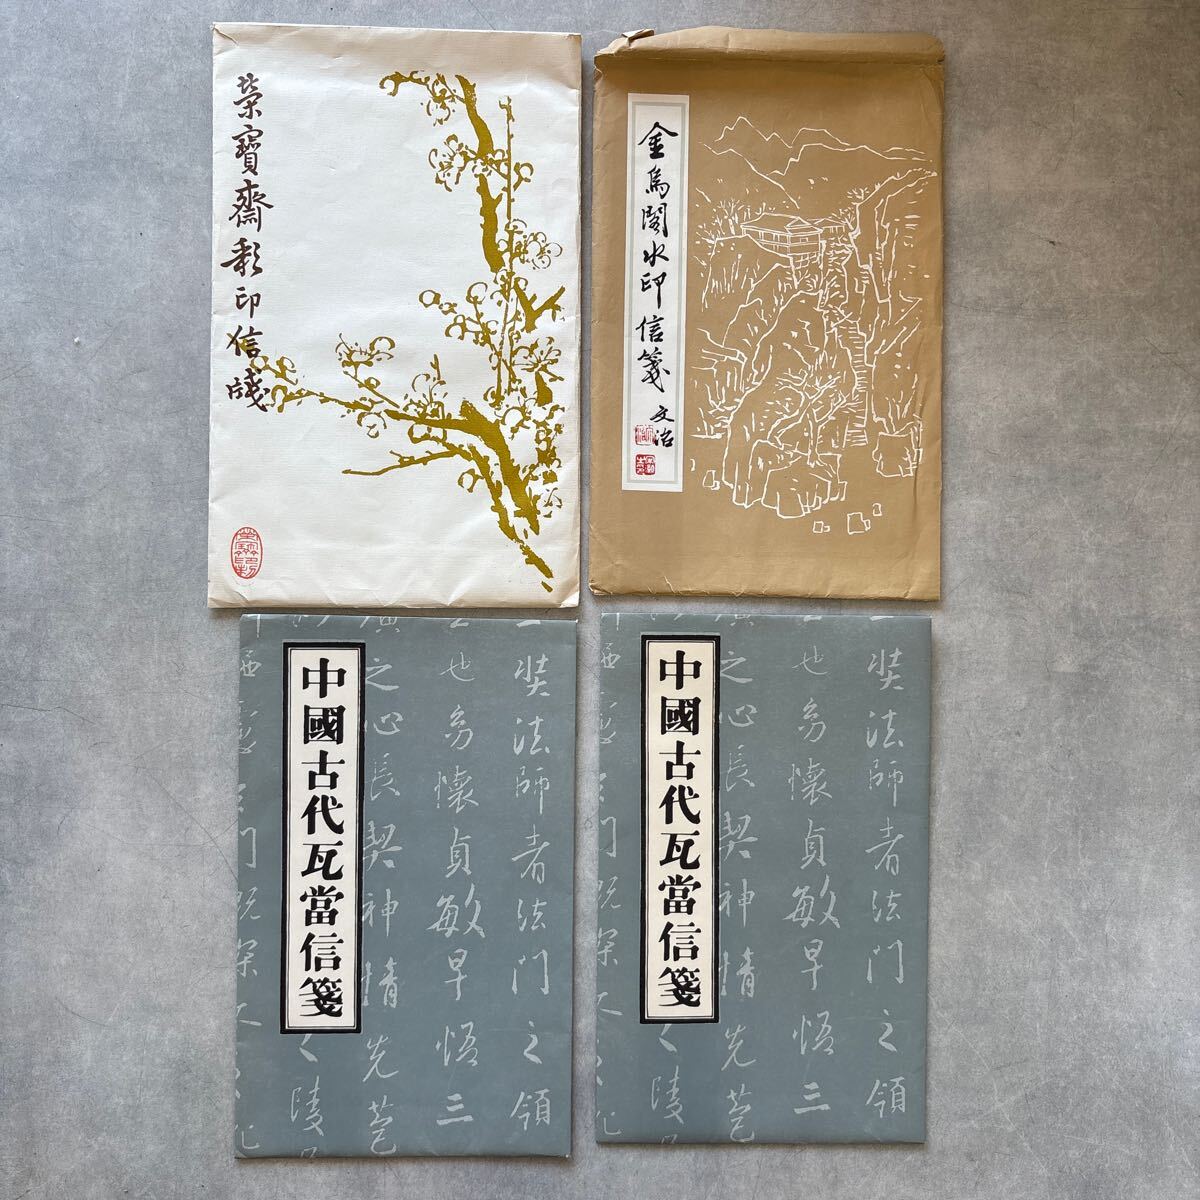 榮寶齋彩印信牋
金烏閣水印信箋
文治
中國古代瓦當信箋
奘法師者法門之領
也幼懷貞敏早悟三
之心長契神情先苞
中國古代瓦當信箋
奘法師者法門之領
也幼懷貞敏早悟三
之心長契神情先苞